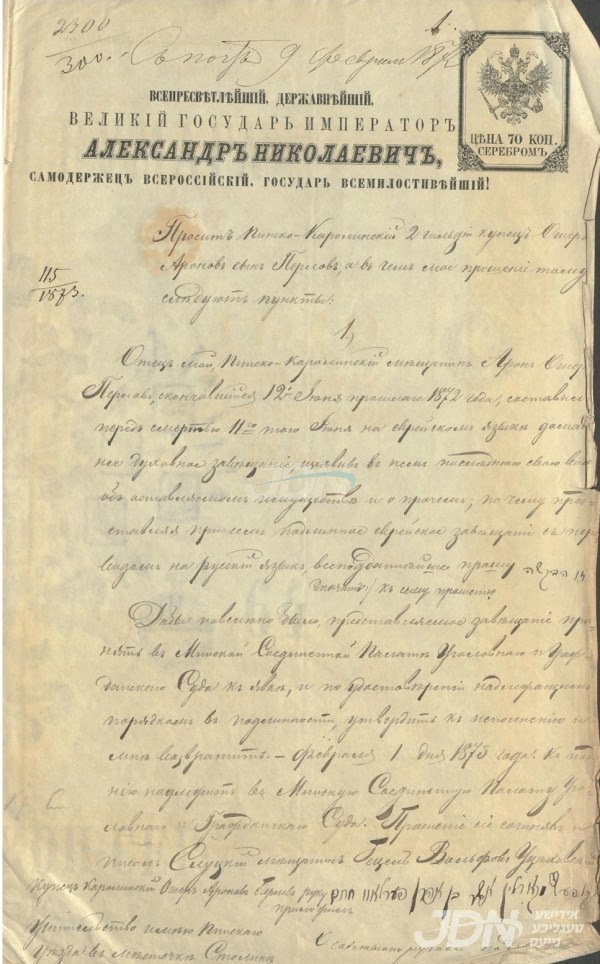 2300
300.
Съ почты 9 Февраля 1873
1.
ВСЕПРЕСВѢТЛѢЙШІЙ, ДЕРЖАВНѢЙШІЙ,
ВЕЛИКІЙ ГОСУДАРЬ ИМПЕРАТОРЪ
АЛЕКСАНДРЪ НИКОЛАЕВИЧЪ,
САМОДЕРЖЕЦЪ ВСЕРОССІЙСКІЙ, ГОСУДАРЬ ВСЕМИЛОСТИВѢЙШІЙ!
ЦѢНА 70 КОП.
СЕРЕБРОМЪ.
Проситъ Пинско-Каролинскій 2 гильдіи купецъ Ошеръ
Ароновъ сынъ Перловъ, а въ чемъ мое прошеніе тому
слѣдуютъ пункты:
115
1873.
1,
Отецъ мой, Пинско-Каролинскій мѣщанинъ Аронъ Ошер
Перловъ, скончавшійся 12го Іюня прошлаго 1872 года, составилъ
передъ смертью 11го того Іюня на еврейскомъ языкѣ домаш
нее духовное завѣщаніе, изъявивъ въ немъ послѣднюю свою волю
объ оставляемомъ имуществѣ и о прочемъ; по чему пред
ставляя при семъ подлинное еврейское завѣщаніе съ пер
еводомъ на русскій языкъ, всеподданнѣйше прошу
къ сему прошенію
Дабы повелѣно было, представляемое завѣщаніе при
нять въ Минской Соединенной Палатѣ Уголовнаго и Граж
данскаго Суда къ явкѣ, и по удостовѣреніи надлежащимъ
порядкомъ въ подлинности, утвердить къ исполненію и
мнѣ возвратить. – Февраля 1 дня 1873 года. Къ пода
нію надлежитъ въ Минскую Соединенную Палату Уго
ловнаго и Гражданскаго Суда. Прошеніе сіе сочинялъ и
писалъ Слуцкій мѣщанинъ Гецель Вольфовъ
Купецъ Каролинскій Ошеръ Ароновъ Перловъ руку
приложилъ
אשר בן אהרן פערלאוו
Жительство имѣю Пинскаго
Уѣзда въ мѣстечкѣ Столинѣ
JDN
אידישע
טעגליכע
נייעס